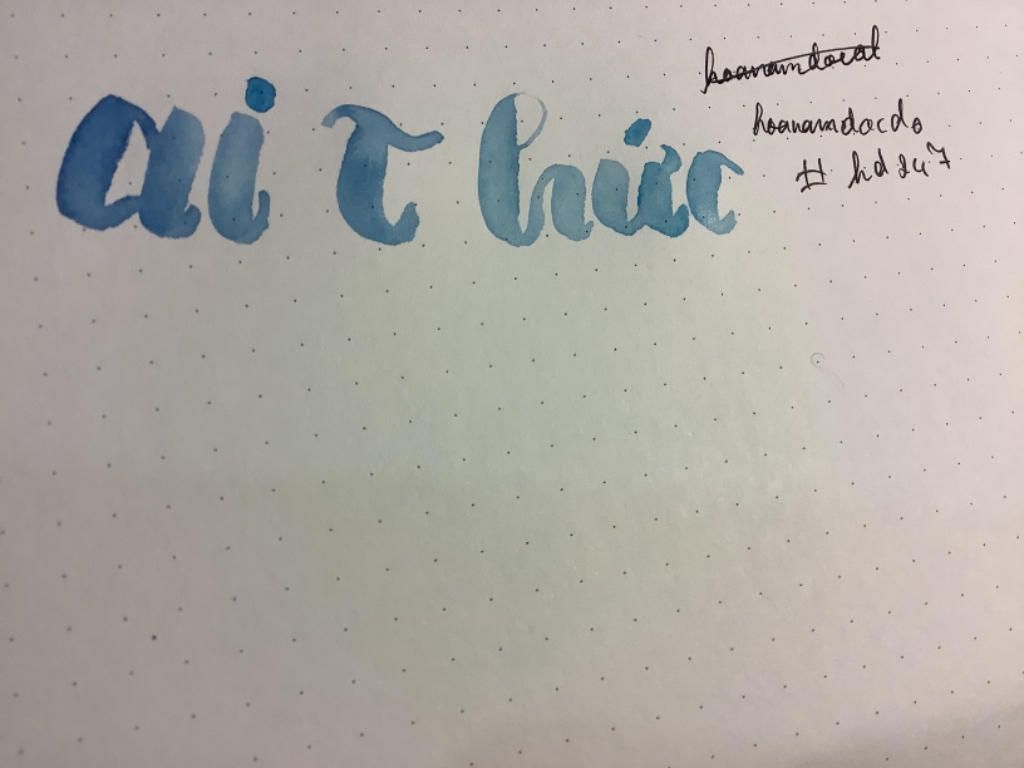 ai thức
hoanamdocdo
# hd247